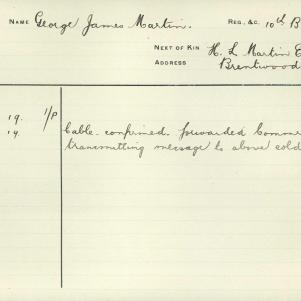 NAME George James Martin. REG., &C. 10th B
NEXT OF KIN H. L. Martin E
ADDRESS Brentwood
19. 1/P Cable confirmed, forwarded Comme
19. transmitting message to above cold